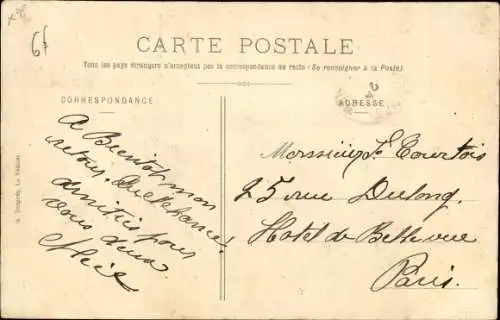 6f
CARTE POSTALE
Tous les pays étrangers n'acceptent pas la correspondance au recto (Se renseigner à la Poste)
CORRESPONDANCE
ADRESSE
A Bientôt mon
retour. Quelle chance!
Amitiés pour
vous deux
Monssieur Courtois
25 rue Dulong.
Hotel de Bellevue
Paris.